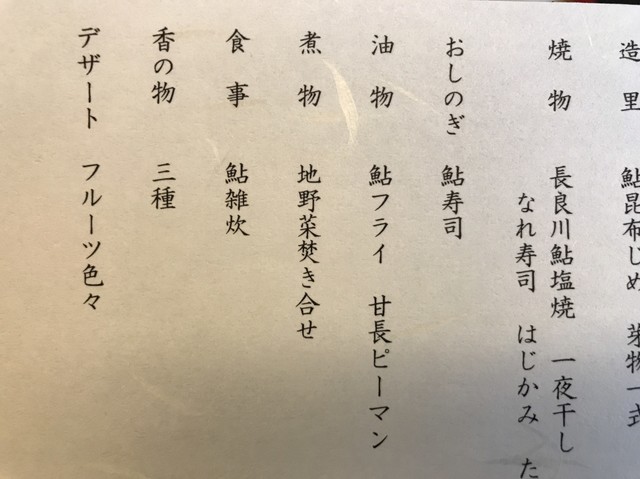 造里 鮎昆布じめ 芽物一式
焼物 長良川鮎塩焼 一夜干し
なれ寿司 はじかみ た
おしのぎ 鮎寿司
油物 鮎フライ 甘長ピーマン
煮物 地野菜焚き合せ
食事 鮎雑炊
香の物 三種
デザート フルーツ色々